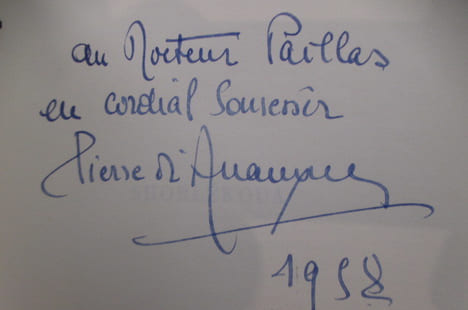 au Docteur Paillas
en cordial Souvenir
Pierre d'
1958